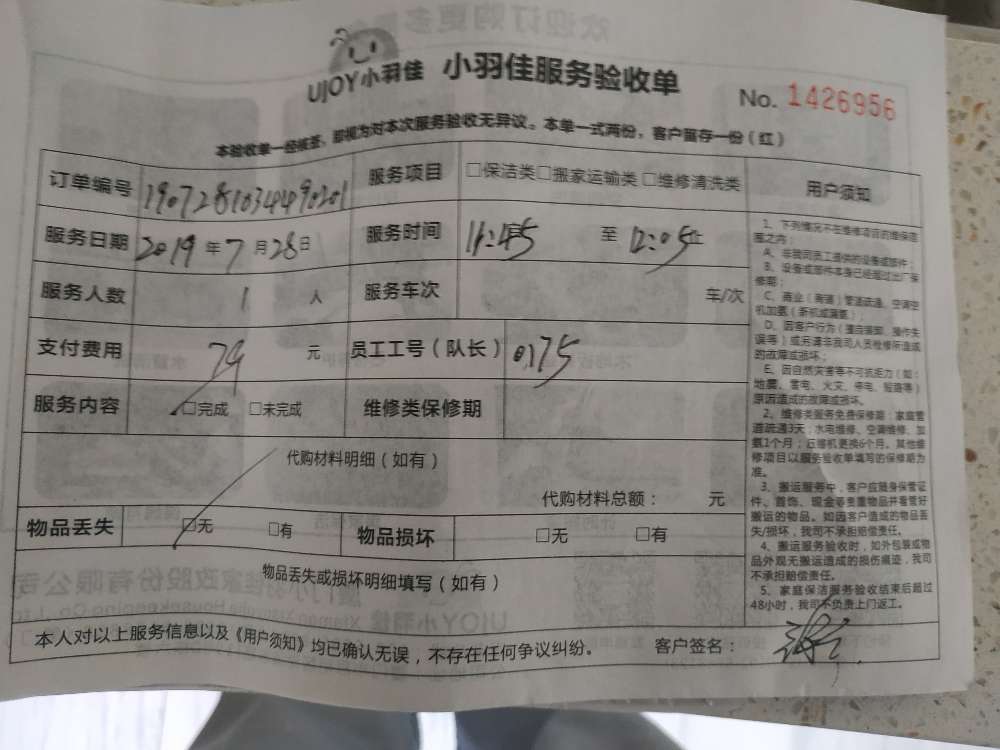 UJOY小羽佳 小羽佳服务验收单
No. 1426956
本验收单一经被签，即视为对本次服务验收无异议。本单一式两份，客户留存一份（红）
订单编号 19072810344490201 服务项目 □保洁类□搬家运输类□维修清洗类
服务日期 2019年7月28日 服务时间 11:45 至 12:05止
服务人数 1 人 服务车次 车/次
支付费用 79 元 员工工号（队长）
服务内容 □完成 □未完成 维修类保修期
代购材料明细（如有）
代购材料总额： 元
物品丢失 □无 □有 物品损坏 □无 □有
物品丢失或损坏明细填写（如有）
本人对以上服务信息以及《用户须知》均已确认无误，不存在任何争议纠纷。 客户签名：
用户须知
1、下列情况不在维修项目的维保范
围之内：
A、非我司员工提供的设备或部件；
B、设备或部件本身已经超过出厂保
修期；
C、商业（商铺）管道疏通、空调空
机加氨（新机或漏氨）；
D、因客户行为（擅自拆卸、操作失
误等）或另请非我司人员检修所造成
的故障或损坏；
E、因自然灾害等不可抗拒力（如：
地震、雷电、火灾、停电、短路等）
原因造成的故障或损坏。
2、维修类服务免费保修期：家庭管
道疏通3天；水电维修、空调维修、加
氨1个月；压缩机更换6个月。其他维
修项目以服务验收单填写的保修期为
准。
3、搬运服务中，客户应随身保管证
件、首饰、现金等贵重物品并看管好
搬运的物品。如因客户造成的物品丢
失/损坏，我司不承担赔偿责任。
4、搬运服务验收时，如外包装或物
品外观无搬运造成的损伤痕迹，我司
不承担赔偿责任。
5、家庭保洁服务验收结束后超过
48小时，我司不负责上门返工。